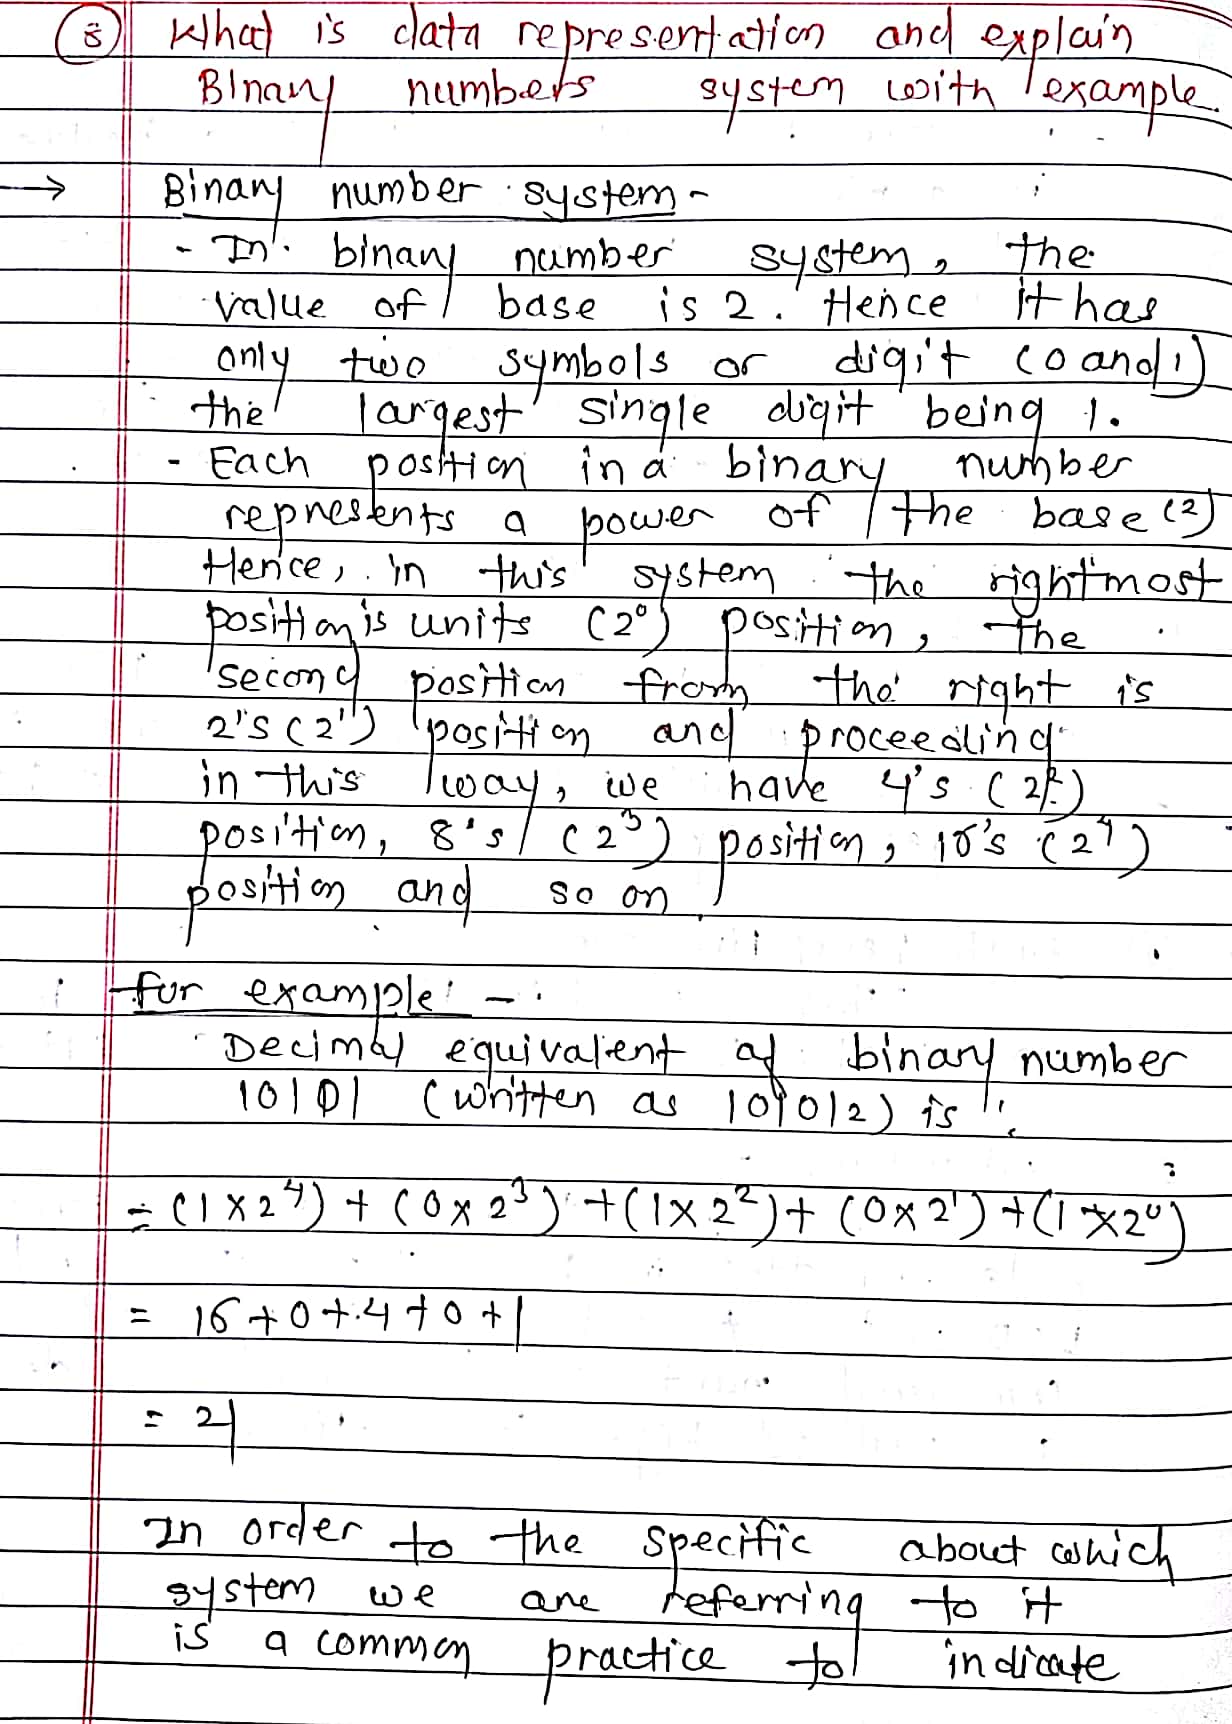 8 What is data representation and explain
Binary numbers system with example.
→ Binary number system -
- In binary number system, the
value of base is 2. Hence it has
only two symbols or digit (0 and 1)
the largest single digit being 1.
- Each position in a binary number
represents a power of the base (2)
Hence, in this system the rightmost
position is units (2⁰) position, the
second position from the right is
2's (2¹) position and proceeding
in this way, we have 4's (2²)
position, 8's (2³) position, 16's (2⁴)
position and so on
for example: -
Decimal equivalent of binary number
10101 (written as 10101₂) is
= (1 × 2⁴) + (0 × 2³) + (1 × 2²) + (0 × 2¹) + (1 × 2⁰)
= 16 + 0 + 4 + 0 + 1
= 21
In order to the specific about which
system we are referring to it
is a common practice to indicate